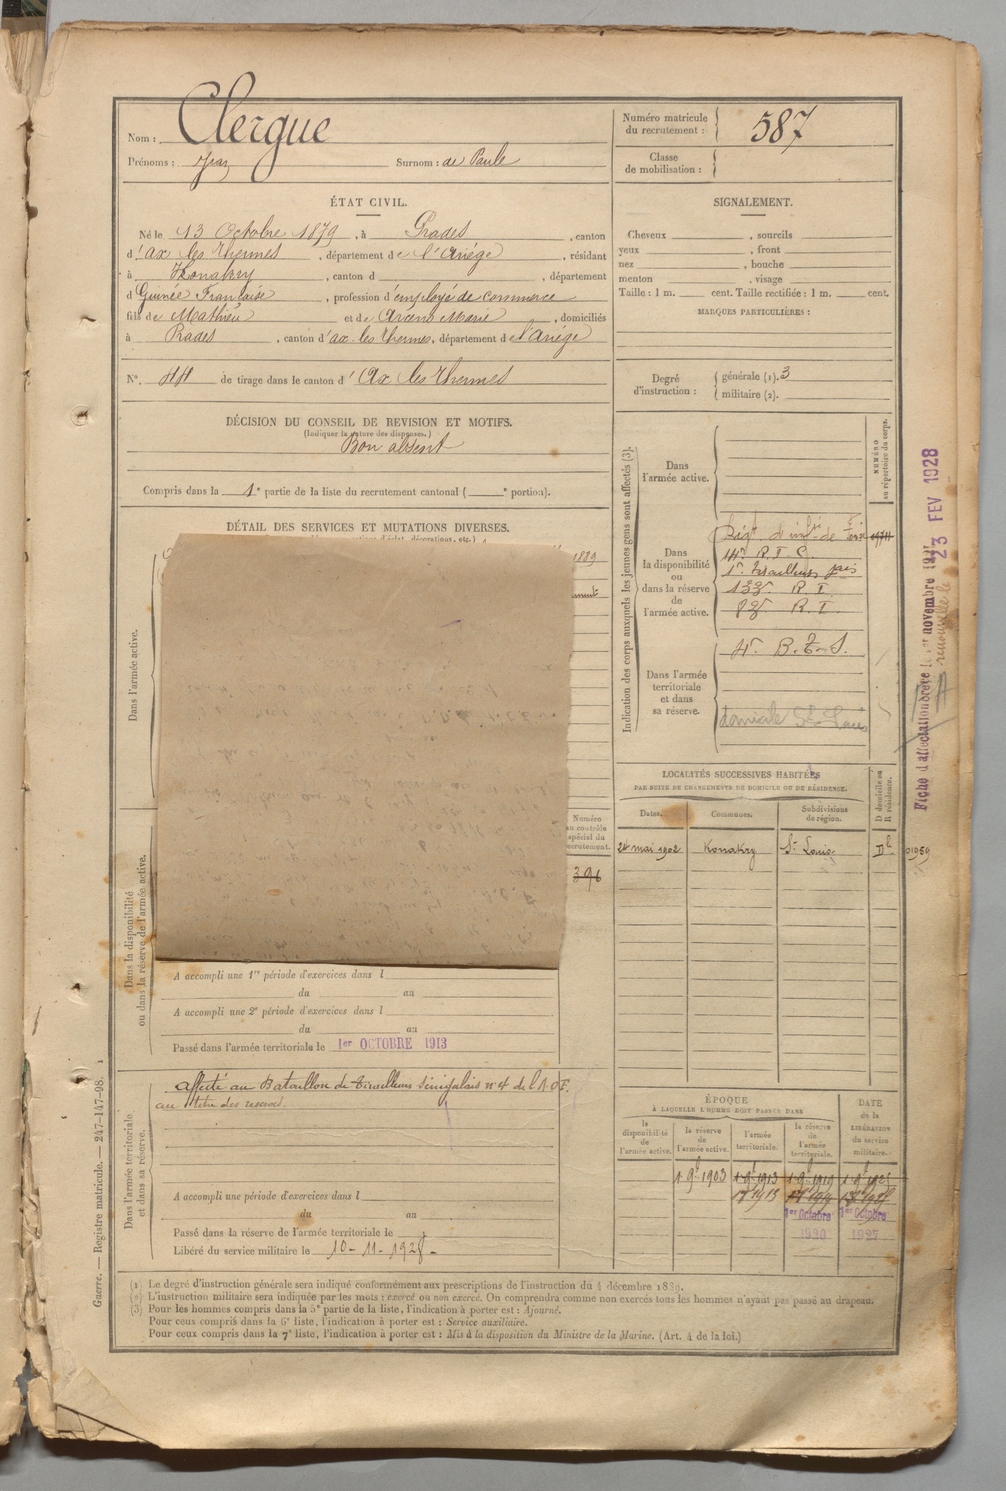 Nom : Clergue
Prénoms : Jean Surnom : de Paule
Numéro matricule du recrutement : 587
Classe de mobilisation :
ÉTAT CIVIL.
Né le 13 Octobre 1879, à Prades, canton
d'ax les thermes, département de l'Ariége, résidant
à Konakry, canton d , département
d Guinée Française, profession d'employé de commerce
fils de Mathieu et de Marie, domiciliés
à Prades, canton d'ax-les thermes, département de l'ariége
N°. 44 de tirage dans le canton d'Ax les thermes
SIGNALEMENT.
Cheveux , sourcils
yeux , front
nez , bouche
menton , visage
Taille : 1 m. cent. Taille rectifiée : 1 m. cent.
MARQUES PARTICULIÈRES :
Degré d'instruction : générale (1). 3
militaire (2).
DÉCISION DU CONSEIL DE REVISION ET MOTIFS.
(Indiquer la nature des dispenses.)
Bon absent
Compris dans la 1e partie de la liste du recrutement cantonal ( e portion).
DÉTAIL DES SERVICES ET MUTATIONS DIVERSES.
Dans l'armée active.
Dans la disponibilité
ou dans la réserve de l'armée active.
Numéro
au contrôle
spécial du
recrutement.
396
A accompli une 1re période d'exercices dans l
du au
A accompli une 2e période d'exercices dans l
du au
Passé dans l'armée territoriale le 1er OCTOBRE 1913
Dans l'armée territoriale
et dans sa réserve.
affecté au Bataillon de Tirailleurs Sénégalais n°4 de l'A.O.F.
au titre des reserves.
A accompli une période d'exercices dans l
du au
Passé dans la réserve de l'armée territoriale le
Libéré du service militaire le 10-11-1928-
Indication des corps auxquels les jeunes gens sont affectés (3).
NUMÉRO
au répertoire du corps.
Dans
l'armée active.
Dans
la disponibilité
ou
dans la réserve
de
l'armée active.
Régt d'infrie de Foix
14e R.I.C.
1er Tirailleurs
133e R.I.
83e R.I.
Dans l'armée
territoriale
et dans
sa réserve.
4e B.T.S.
domicile St Louis
LOCALITÉS SUCCESSIVES HABITÉES
PAR SUITE DE CHANGEMENTS DE DOMICILE OU DE RÉSIDENCE.
Dates. Communes. Subdivisions de région. D domicile ou R résidence.
24 mai 1902 Konakry St Louis D
ÉPOQUE
À LAQUELLE L'HOMME DOIT PASSER DANS
la disponibilité de l'armée active.
la réserve de l'armée active.
l'armée territoriale.
la réserve de l'armée territoriale.
DATE de la LIBÉRATION du service militaire.
1 9e 1903 1 9e 1913 1 9e 1919
1er Octobre 1er Octobre
1920 1927
Fiche d'affectation
23 FEV 1928
Guerre. — Registre matricule. — 247-147-98.
(1) Le degré d'instruction générale sera indiqué conformément aux prescriptions de l'instruction du 4 décembre 1889.
(2) L'instruction militaire sera indiquée par les mots : exercé ou non exercé. On comprendra comme non exercés tous les hommes n'ayant pas passé au drapeau.
(3) Pour les hommes compris dans la 5e partie de la liste, l'indication à porter est : Ajourné.
Pour ceux compris dans la 6e liste, l'indication à porter est : Service auxiliaire.
Pour ceux compris dans la 7e liste, l'indication à porter est : Mis à la disposition du Ministre de la Marine. (Art. 4 de la loi.)